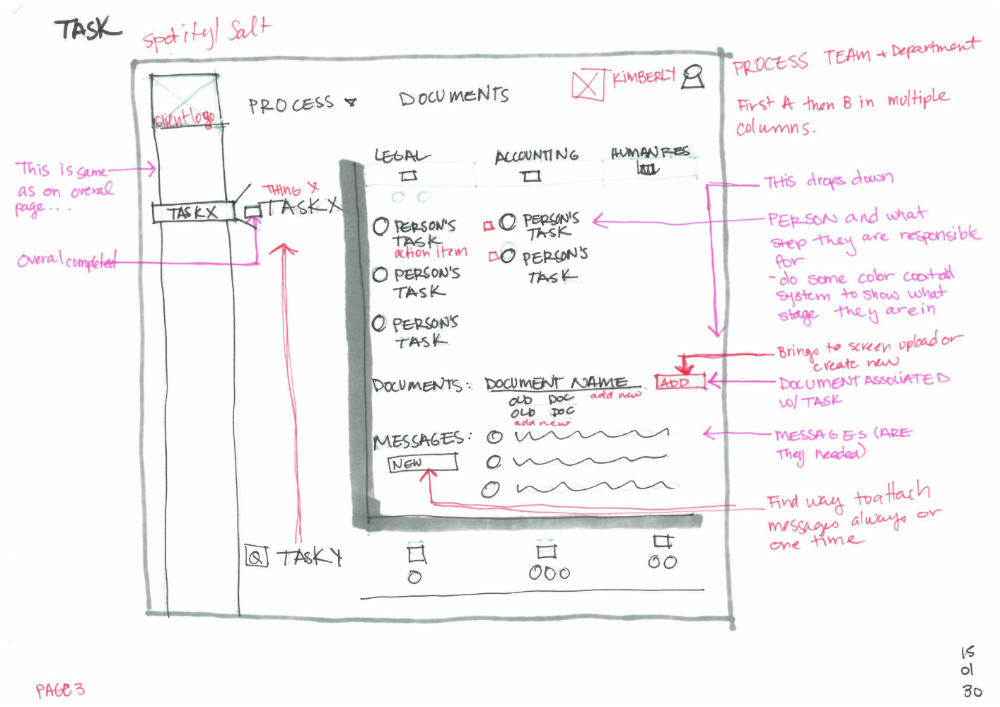 TASK
spotify/ Salt
client logo
PROCESS
DOCUMENTS
KIMBERLY
PROCESS TEAM + Department
First A then B in multiple
columns.
This is same
as on overal
page...
TASK X
Overal completed
THING X
TASK X
LEGAL
ACCOUNTING
HUMAN RES
PERSON'S
TASK
action item
PERSON'S
TASK
PERSON'S
TASK
PERSON'S
TASK
PERSON'S
TASK
THis drops down
PERSON and what
step they are responsible
for
- do some color
system to show what
stage they are in
Brings to screen upload or
create new
DOCUMENTS:
DOCUMENT NAME
add new
ADD
OLD DOC
OLD DOC
add new
DOCUMENT ASSOCIATED
W/ TASK
MESSAGES:
NEW
MESSAGES (ARE
They needed)
Find way to attach
messages always or
one time
Q
TASK Y
PAGE 3
15
01
30